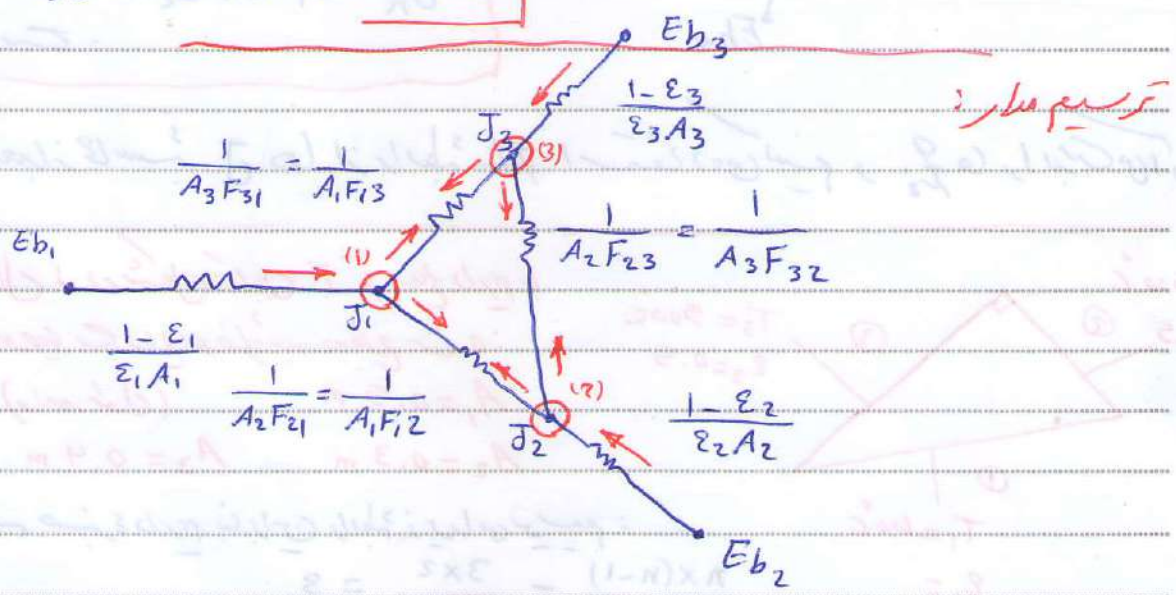 Eb₃
ترسیم مدار :
(1-ε₃)/(ε₃A₃)
J₃ (3)
1/(A₃F₃₁) = 1/(A₁F₁₃)
1/(A₂F₂₃) = 1/(A₃F₃₂)
Eb₁
(1)
J₁
(1-ε₁)/(ε₁A₁)
1/(A₂F₂₁) = 1/(A₁F₁₂)
(2)
J₂
(1-ε₂)/(ε₂A₂)
Eb₂